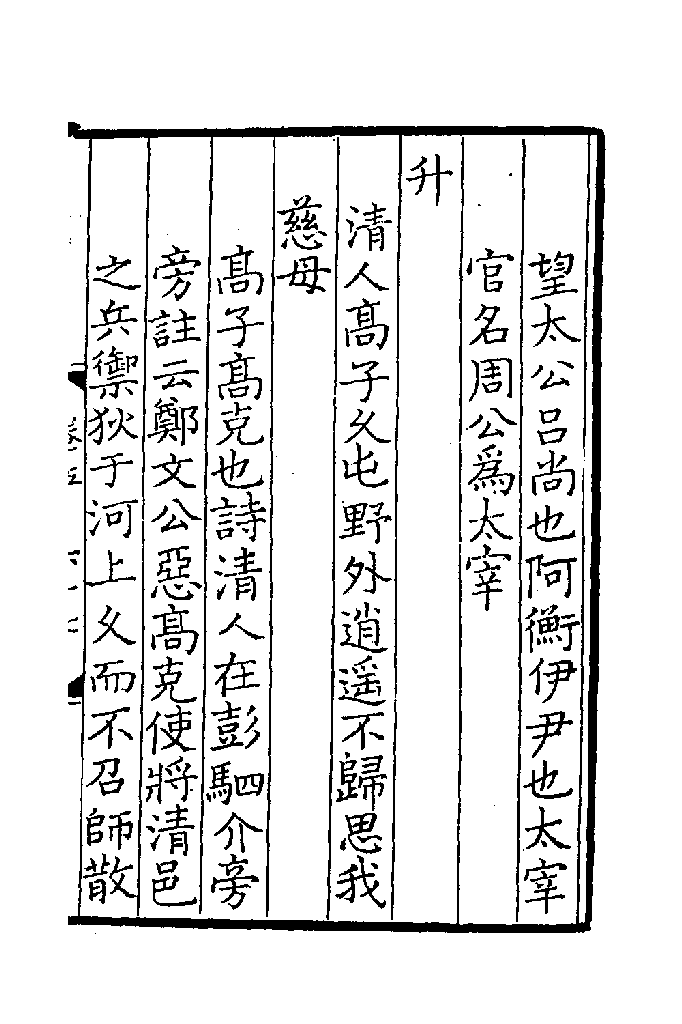 望太公吕尚也阿衡伊尹也太宰
官名周公爲太宰
升
清人髙子乆屯野外逍遥不歸思我
慈母
髙子髙克也詩清人在彭駟介旁
旁註云鄭文公惡髙克使將清邑
之兵禦狄于河上乆而不召師散